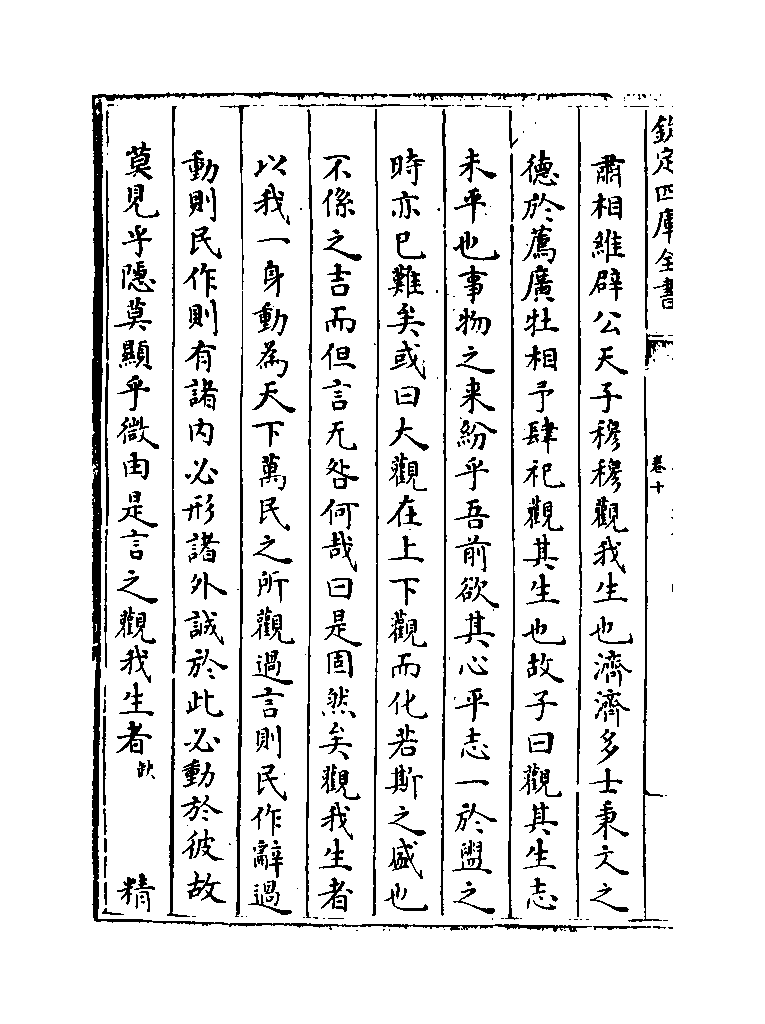 欽定四庫全書
卷十
肅相維辟公天子穆穆觀我生也濟濟多士秉文之
德於薦廣牡相予肆祀觀其生也故子曰觀其生志
未平也事物之来紛乎吾前欲其心平志一於盥之
時亦已難矣或曰大觀在上下觀而化若斯之盛也
不係之吉而但言无咎何哉曰是固然矣觀我生者
以我一身動為天下萬民之所觀過言則民作辭過
動則民作則有諸内必形諸外誠於此必動於彼故
莫見乎隱莫顯乎微由是言之觀我生者 缺 精